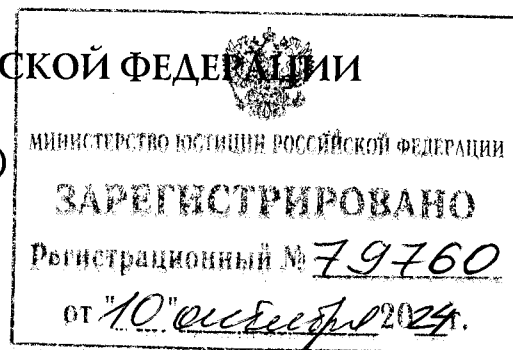 СКОЙ ФЕДЕРАЦИИ
)
МИНИСТЕРСТВО ЮСТИЦИИ РОССИЙСКОЙ ФЕДЕРАЦИИ
ЗАРЕГИСТРИРОВАНО
Регистрационный № 79760
от "10" октября 2024г.